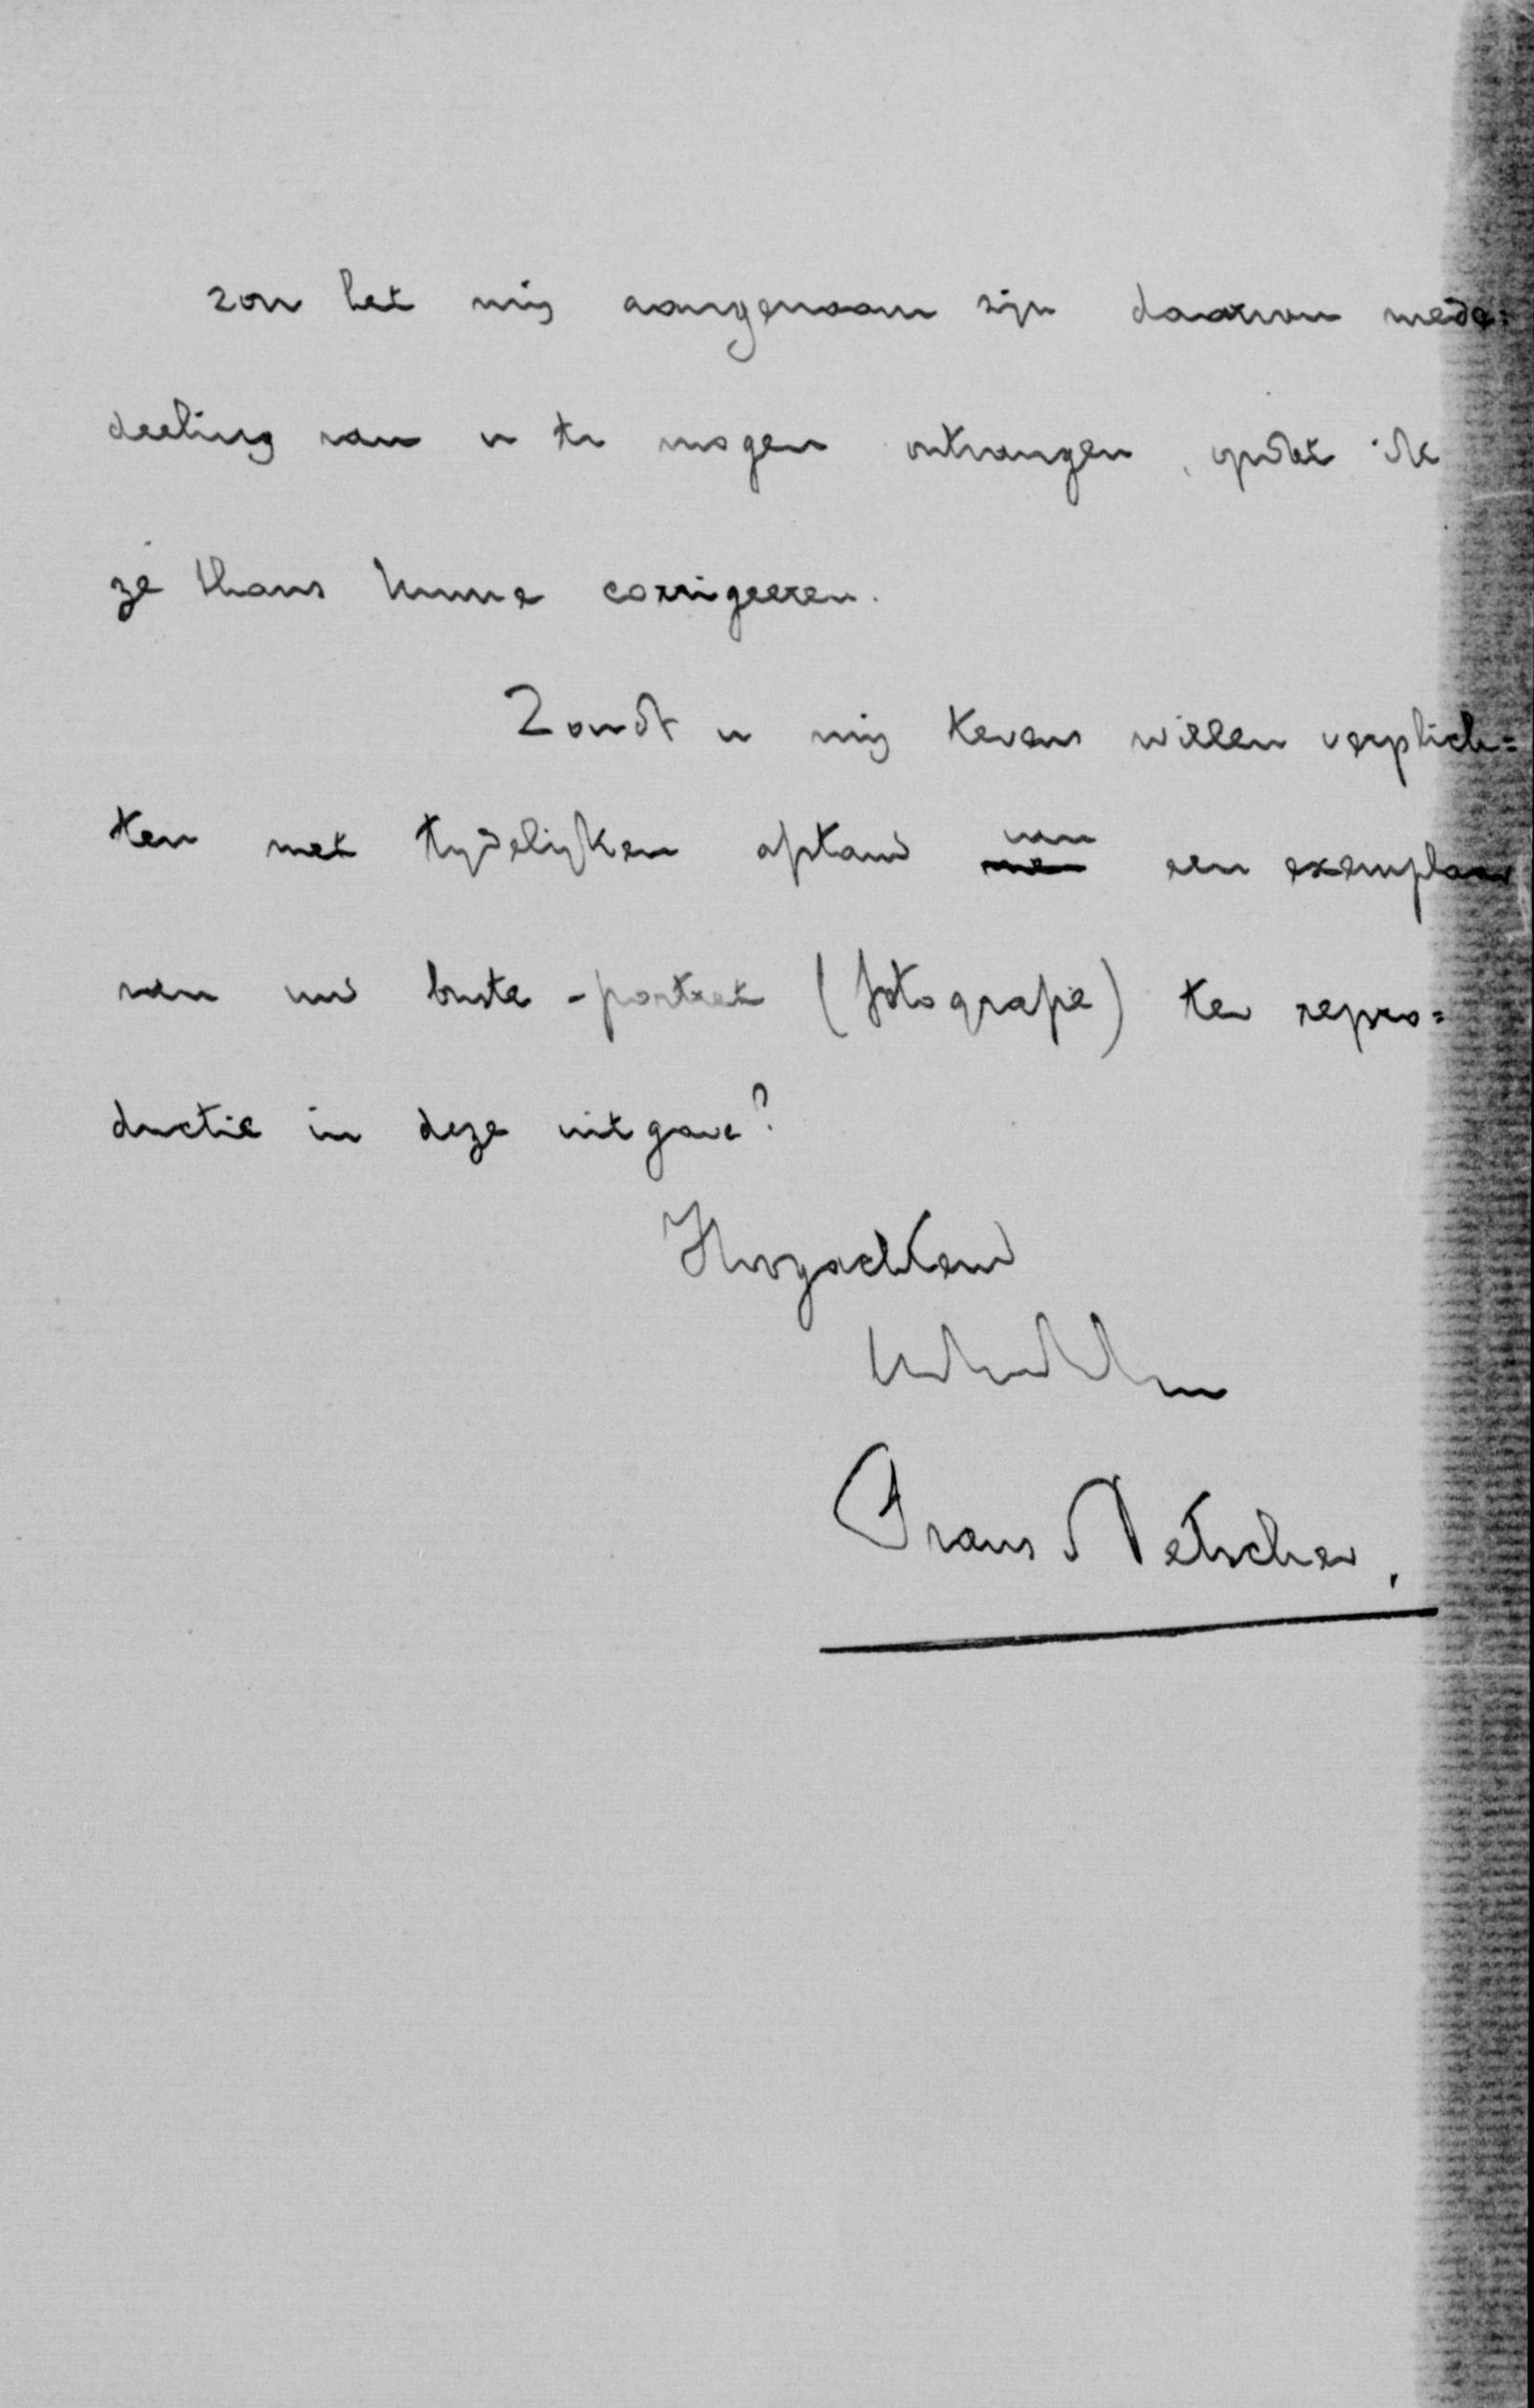 zou het mij aangenaam zijn daarvan mede=
deeling van u te mogen ontvangen, opdat ik
ze thans kunne corrigeeren.
Zoudt u mij tevens willen verplich=
ten met tijdelijken afstand van een exemplaar
van uw buste-portret (fotografie) ter repro=
ductie in deze uitgave?
Hoogachtend
Frans Netscher.